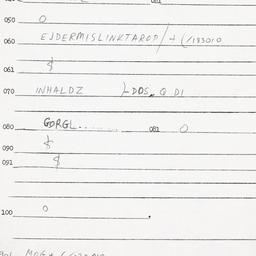 050 O
060 EJDERMISLINKTAROP/+(/133010
061 $
070 INHALDZ DOS. Q DI
080 GORGL.. 081 O
090 $
091 $
100 O